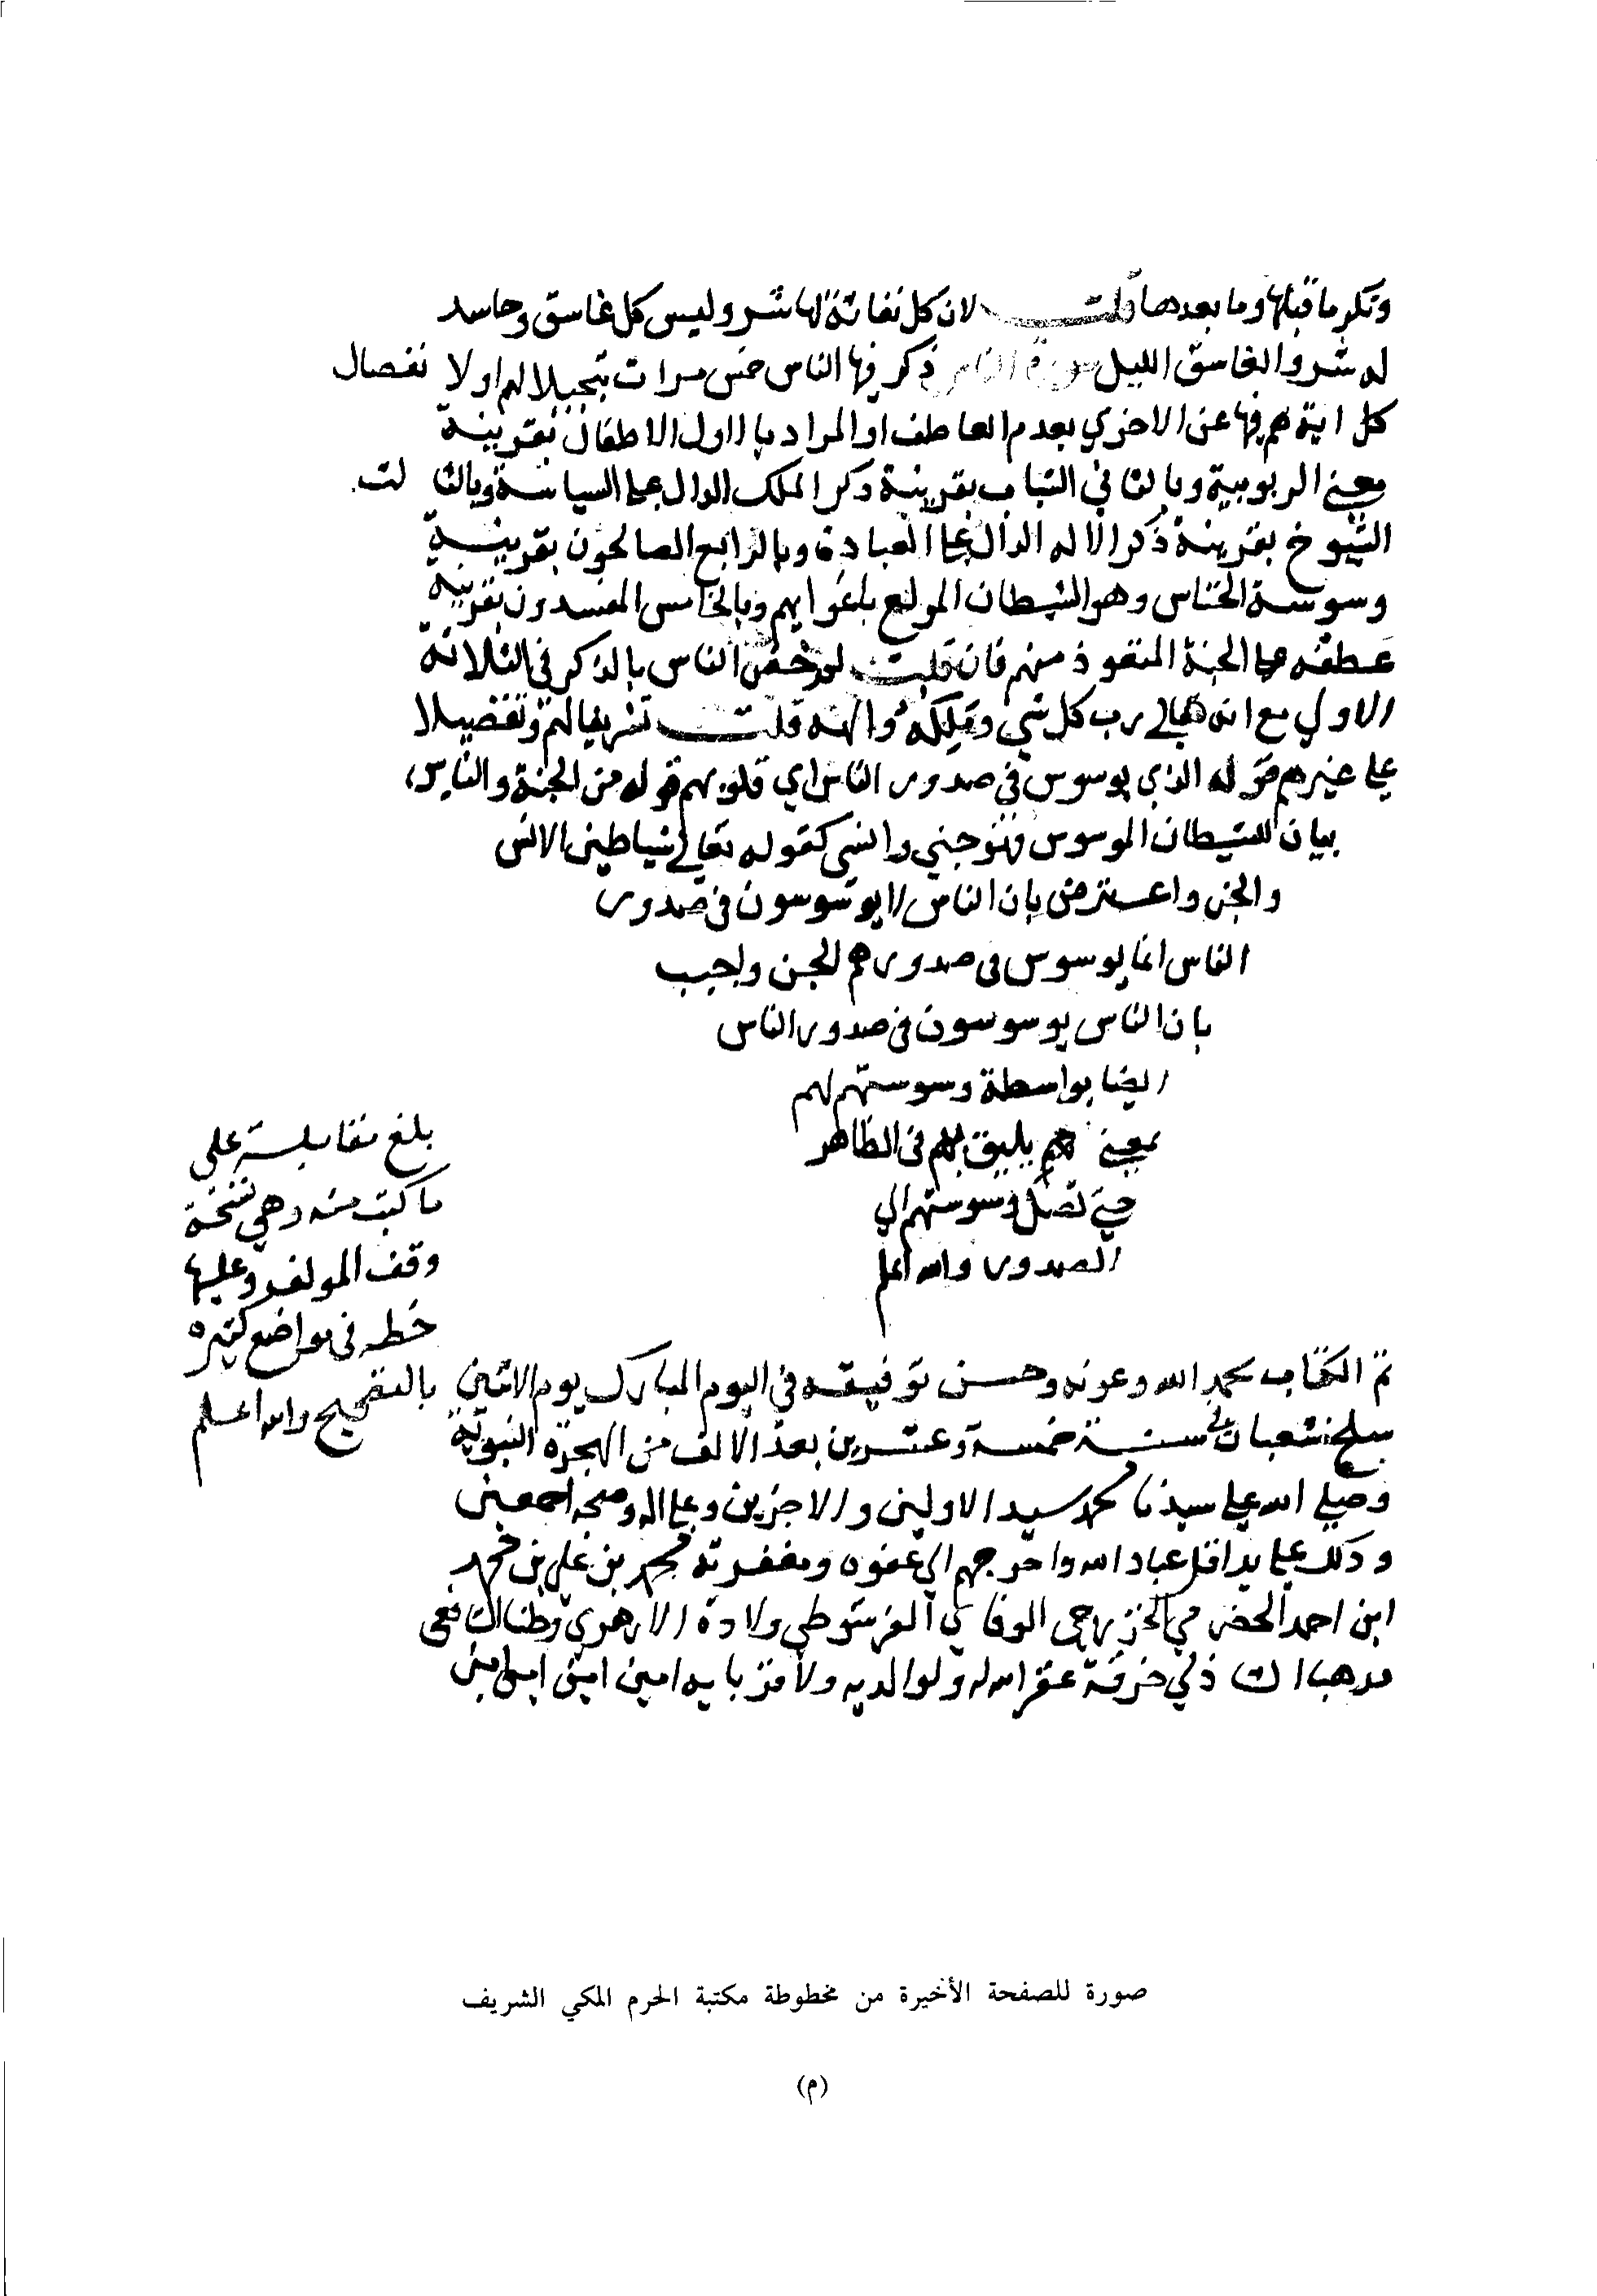 ونكر ما قبلها وما بعدها قلت لان كل نفاثة لها شر وليس كل غاسق وحاسد
له شر والغاسق الليل سورة الناس ذكر فيها الناس خمس مرات تبجيلا لهم او لا نفصال
كل اية منها عن الاخري بعدم العاطف او المراد بالاول الاطفال بقرينة
معني الربوبية وبالثاني الشباب بقرينة ذكر الملك الدال علي السياسة وبالثا لث
الشيوخ بقرينة ذكر الاله الدال علي العبادة وبالرابع الصالحون بقرينة
وسوسة الخناس وهو الشيطان المولع باغوايهم وبالخامس المفسدون بقرينة
عطفه علي الجنة المتعوذ منهم فان قلت لم خص الناس بالذكر في الثلاثة
الاولي مع انه تعالي رب كل شي وملكه والهه قلت تشريفا لهم وتفضيلا
علي غيرهم قوله الذي يوسوس في صدور الناس اي قلوبهم قوله من الجنة والناس
بيان للشيطان الموسوس فهو جني وانسي كقوله تعالي شياطين الانس
والجن واعترض بان الناس لا يوسوسون في صدور
الناس انما يوسوس في صدورهم الجن واجيب
بان الناس يوسوسون في صدور الناس
ايضا بواسطة وسوستهم لهم
بمعني يليق بهم في الظاهر
حتي تصل وسوستهم الي
الصدور والله اعلم
بلغ مقابلة علي
ما كتب منه وهي نسخة
وقف المولف وعليها
خطه في مواضع كثيرة
بالتصحيح والله اعلم
تم الكتاب بحمد الله وعونه وحسن توفيقه في اليوم المبارك يوم الاثنين
سلخ شعبان سنة خمسة وعشرين بعد الالف من الهجرة النبوية
وصلي الله علي سيدنا محمد سيد الاولين والاخرين وعلي اله وصحبه اجمعين
وذلك علي يد اقل عباد الله واحوجهم الي عفوه ومغفرته محمد بن علي بن محمد
ابن احمد الحضرمي الخزرجي الوفاي الفرشوطي ولادة الازهري وطنا الشافعي
مذهبا الشاذلي خرقة غفر الله له ولوالديه ولاقربايه امين امين امين
صورة للصفحة الأخيرة من مخطوطة مكتبة الحرم المكي الشريف
(م)